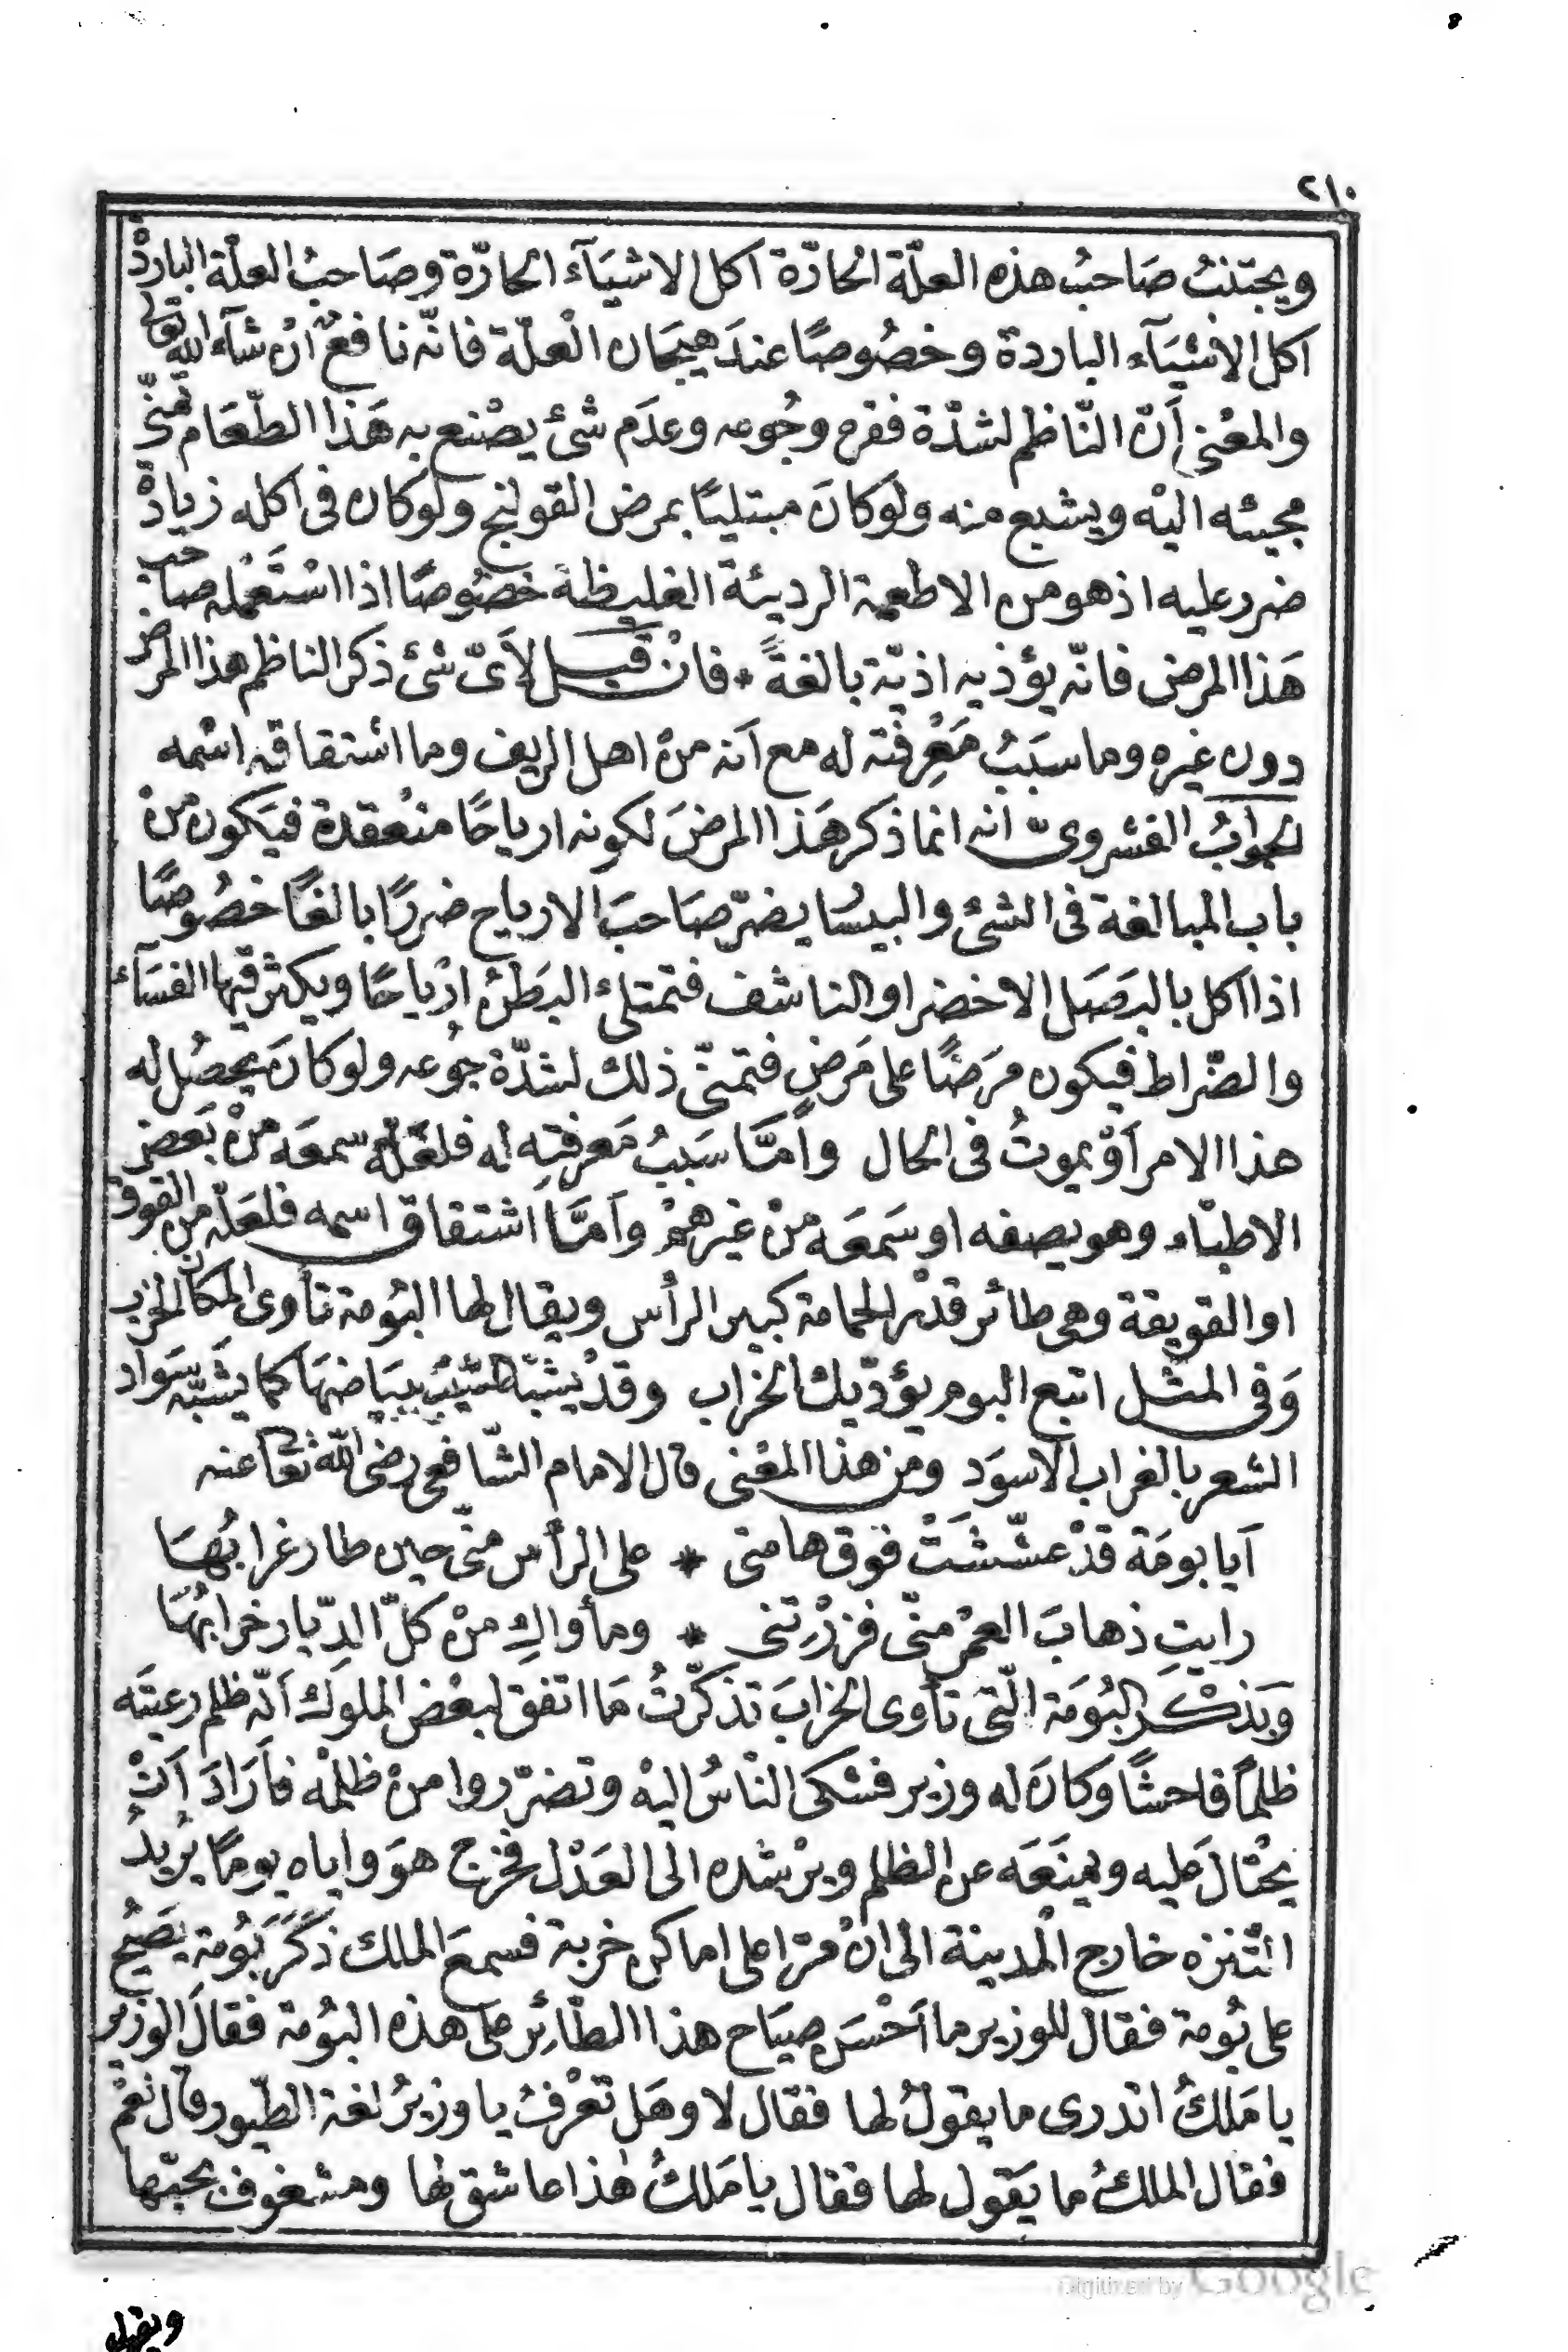 ٢١٠
ويجتنبُ صَاحبُ هذه العلّة الحارّة اكل الاشيَآء الحارّة وصَاحبُ العلّة الباردة
اكل الاشيَآء الباردة وخصُوصًا عندَ هيجَان العْلّة فانّه نافعٌ انْ شآء الله تعالى
والمعْنى أَنّ النّاظم لشدّة فقره وجُوعه وعدَم شئ يصْنع به هَذا الطّعَام تمنّى
مجيئه اليْه ويشبع منه ولَوكانَ مبتليًا بمرض القولنج ولَوكان فى اكله زيادة
ضرر عليه اذ هو من الاطعمة الرديئة الغليظة خصُوصًا اذا اسْتَعْمله صاحب
هَذا المرض فانّه يؤذيه اذيّة بالغةً * فانْ قيل لأىّ شئ ذكر الناظم هذا المرض
دون غيره وما سبَبُ مَعْرِفته له مع اَنه منْ اهل الريف وما اشتقاق اسْمه
الجوابُ الفشروىّ انه انما ذكر هَذا المرضَ لكونه ارياحًا منْعقدة فيَكون منْ
باب المبالغة فى الشئ والبيسَار يضرّ صَاحبَ الارياح ضررًا بالغًا خصُوصًا
اذا اكل بالبَصَل الاخضر او الناشف فتمتلئ البَطْن ارْياحًا ويكثر فيهَا الفسَآء
والضّراط فيكون مرَضًا على مَرضٍ فتمنّى ذلك لشدّة جُوعه ولو كانَ يحصُل له
هذا الامر أوْ يموتُ فى الحال وأمَّا سَبَبُ مَعرفتِه له فلعَلّه سمعَه منْ بَعض
الاطبّاء وهو يصفه او سَمعَه منْ غيرهمْ وأمَّا اشتقاق اسمه فلعَلّه من القووق
او القويقة وهى طائر قدْر الحمامة كبير الرأس ويقال لها البُومة تأوى المكان الخرب
وَفى المثَل اتبع البوم يؤدّيك الخراب وقدْ يشبّه الشيْب ببيَاضهَا كما يشَبّه سَوَاد
الشعر بالغراب الاسوَد ومن هذا المعْنى قال الامام الشّافعى رضى الله تعَالى عنه
اَيا بومَة قدْ عشّشَتْ فوْق هامتى * على الرأس منّى حين طار غرابُهَا
رايتِ ذهابَ العمْر منّى فزرْتِنى * ومأواكِ منْ كلّ الدّيار خرابُهَا
وَبذكْر البُومَة الّتى تأوى الخرابَ تذكّرتُ مَا اتفق لبعْض الملوَك اَنّه ظلم رعيتَه
ظلماً فاحشًا وكانَ له وزير فشكى النّاسُ اليْه وتضرّروا منْ ظلمْه فأرَادَ أَنْ
يحْتالَ عَليه ويمنَعَه عن الظلم ويرْشده الى العَدْل فخرج هوَ واياه يومًا يُريدُ
التّنزه خارج المْدينة الى انْ مرّا على اماكن خربة فسمعَ الملك ذكَرَ بَوُمة يَصيُح
على بُومة فقال للوزير ما اَحْسَن صيَاح هذا الطّائِر على هذه البوُمة فقالَ الوزير
يا مَلكُ اتدرى ما يقولُ لها فقال لا وهَل تعْرفُ يا وزيرُ لغة الطّيور قال نعْم
فقال الملكُ ما يَقول لها فقال يا مَلكُ هٰذا عاشق لها ومشغوف بحبّها
ويقول
Digitized by Google